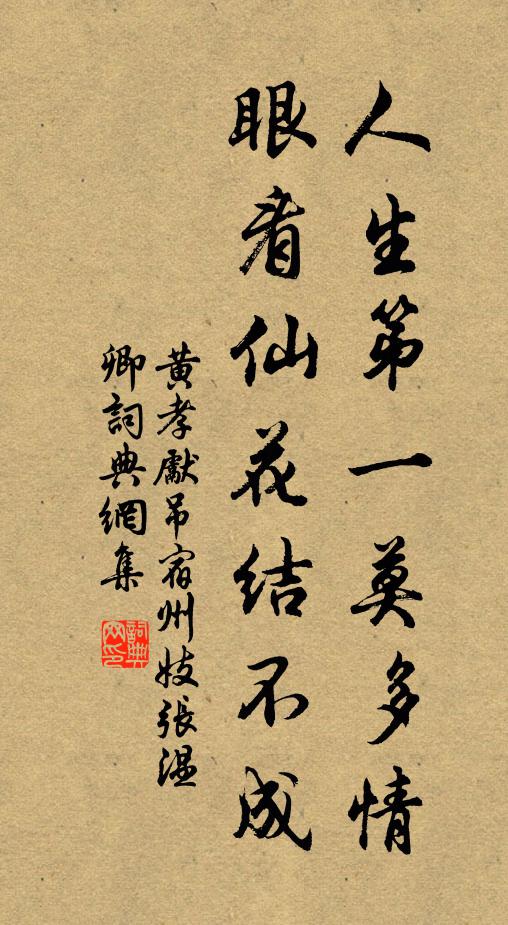 人生第一莫多情
眼看仙花結不成
黄孝獻吊宿州妓張温
卿詞典網集
詞典網印